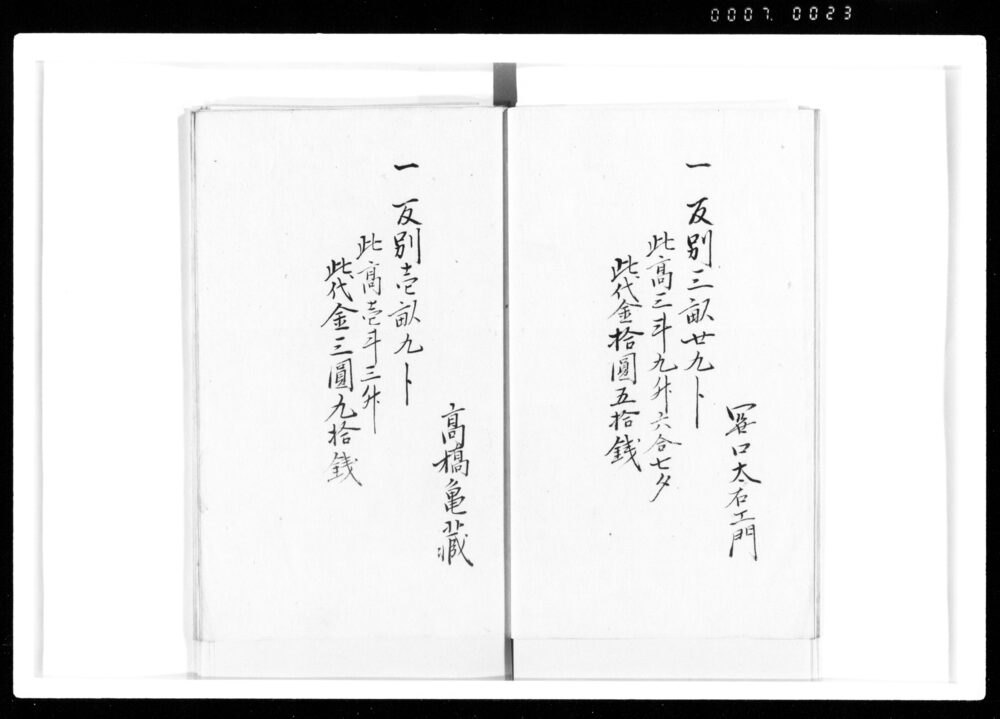 0007. 0023
口太右エ門
一 反別三畝廿九卜
此高三斗九升六合七夕
此代金拾圓五拾銭
高橋亀蔵
一 反別壱畝九卜
此高壱斗三升
此代金三圓九拾銭